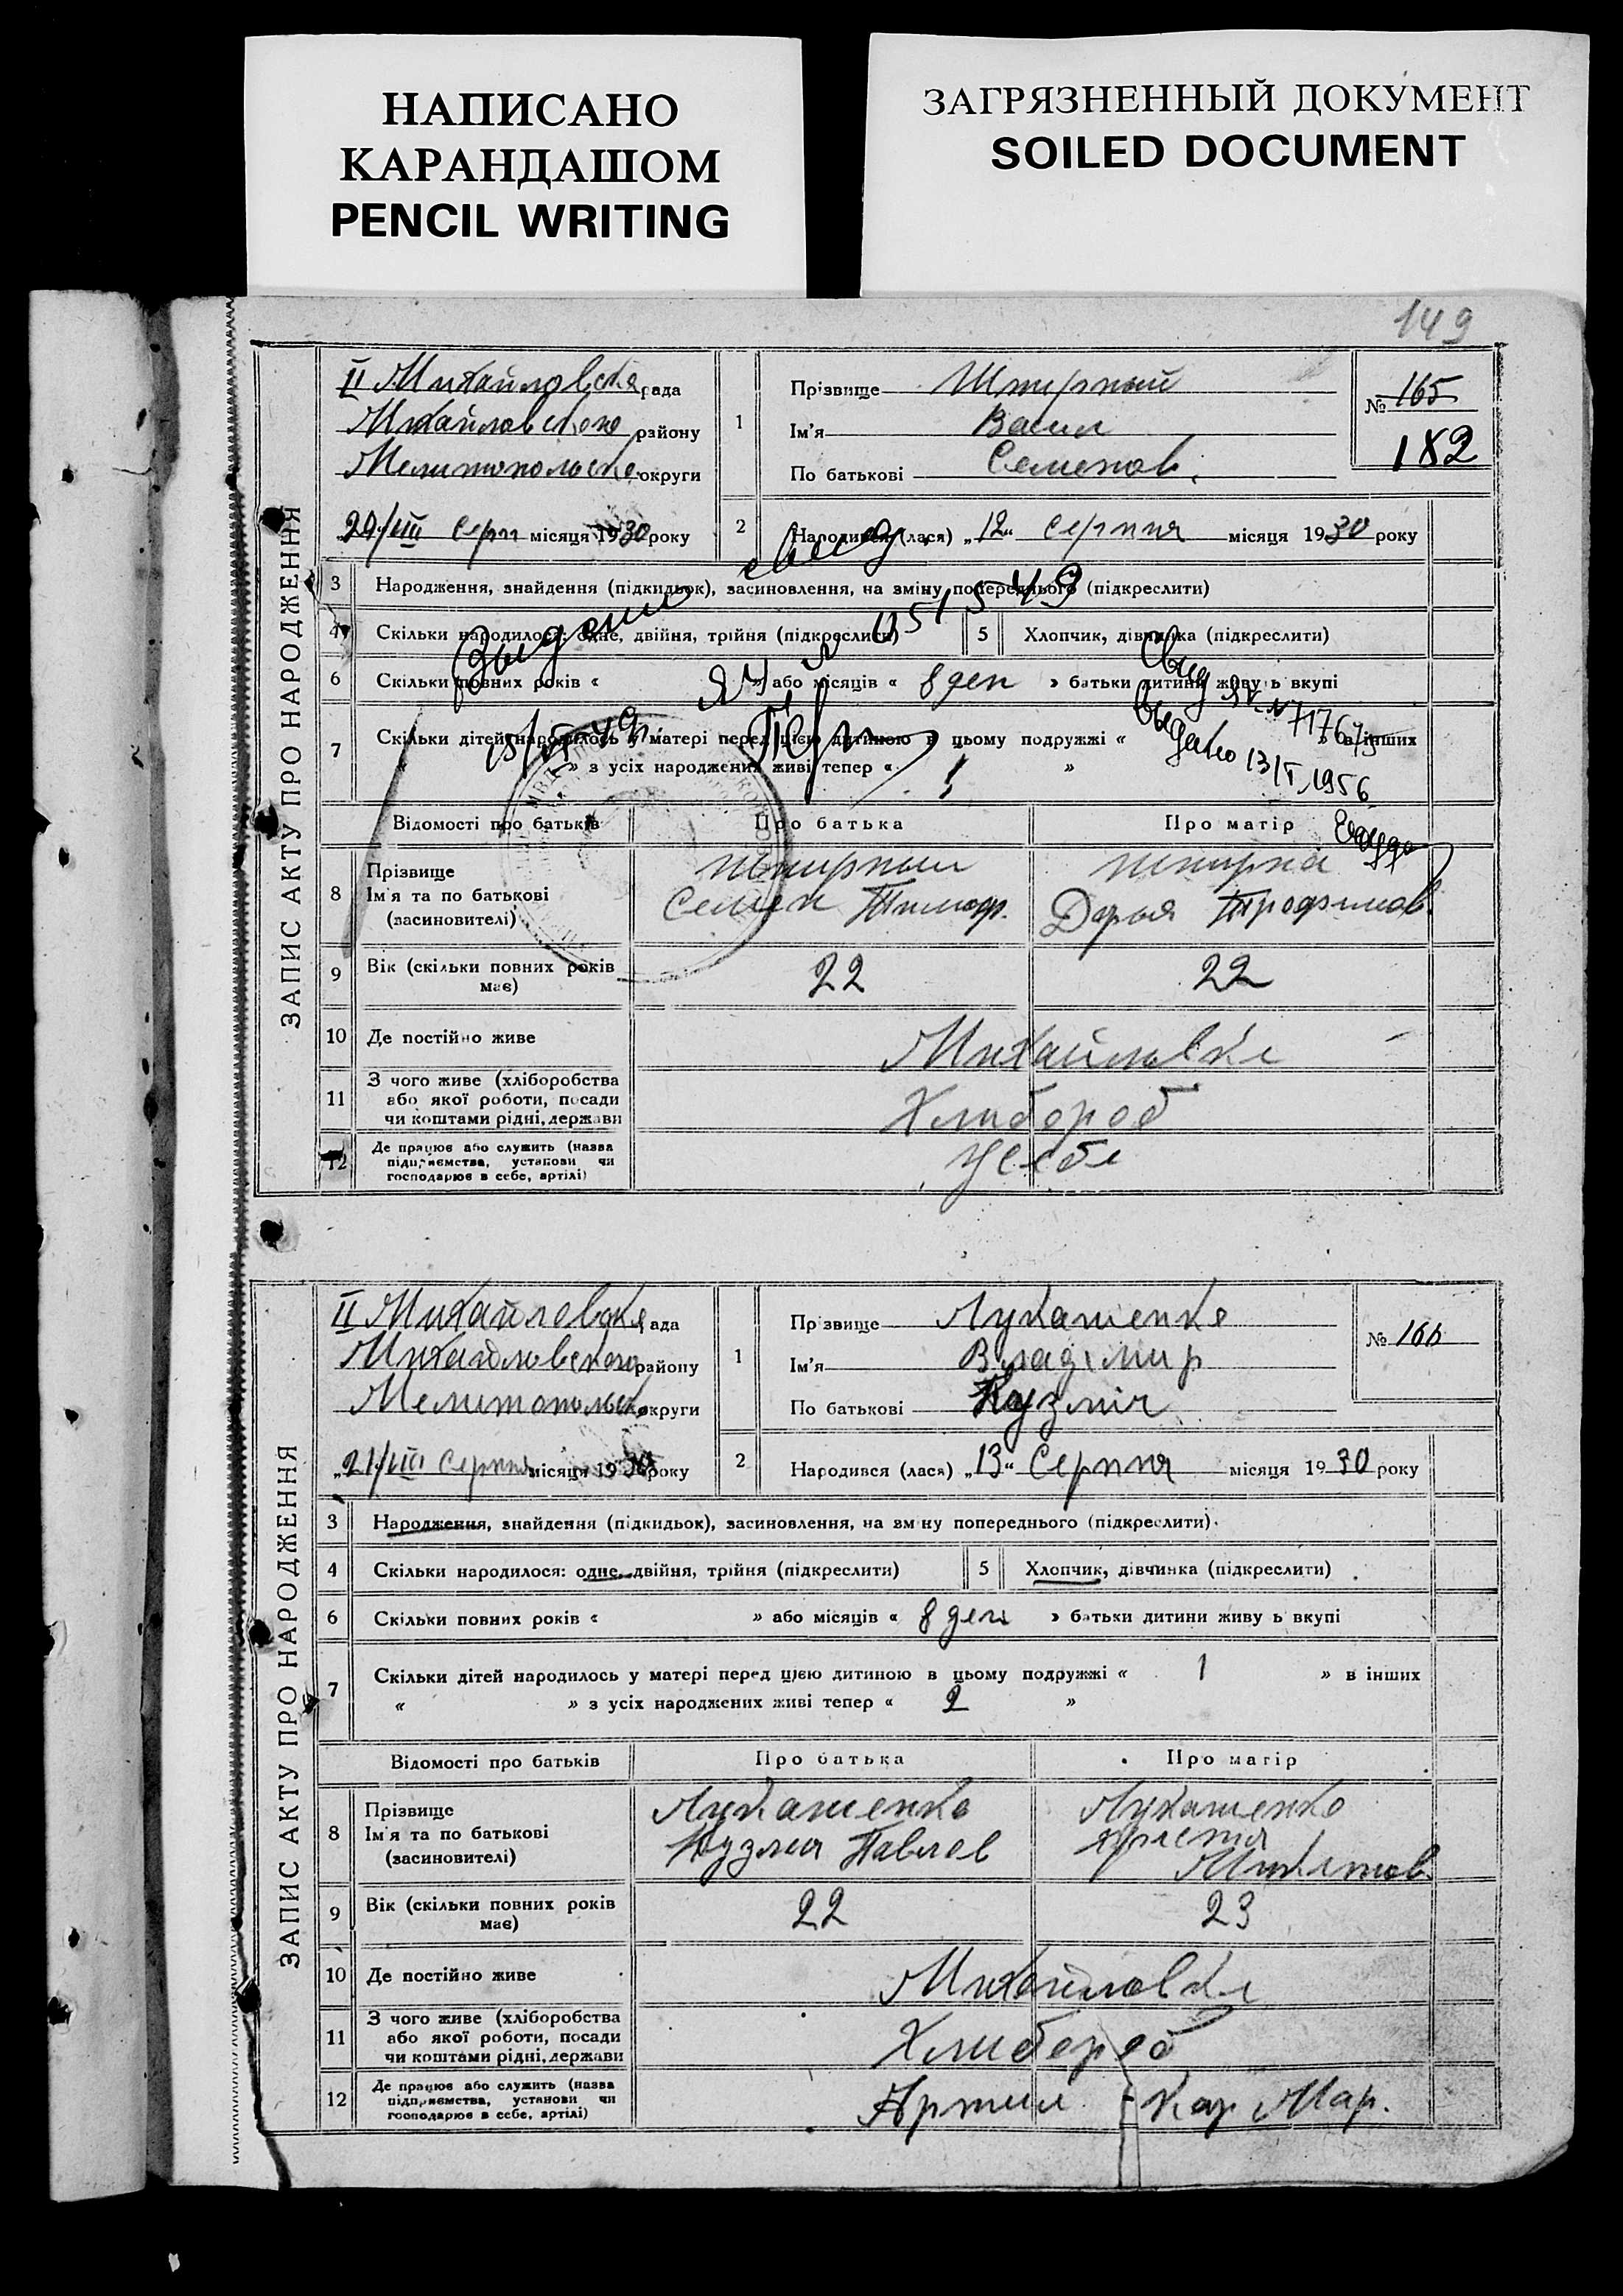 НАПИСАНО
КАРАНДАШОМ
PENCIL WRITING
ЗАГРЯЗНЕННЫЙ ДОКУМЕНТ
SOILED DOCUMENT
149
ЗАПИС АКТУ ПРО НАРОДЖЕННЯ
II Михайловська рада
Михайловського району
Мелитопольско округи
20/VIII Серп місяця 1930 року
1 Прізвище Шпирный
Ім'я Васил
По батькові Семенов.
№ 165
182
2 Народився (лася) „12“ Серпня місяця 1930 року
3 Народження, знайдення (підкидьок), засиновлення, на зміну попереднього (підкреслити)
4 Скільки народилося: одне, двійня, трійня (підкреслити) 5 Хлопчик, дівчинка (підкреслити)
6 Скільки повних років « » або місяців « 8 ден » батьки дитини живуть вкупі
7 Скільки дітей народилось у матері перед цією дитиною в цьому подружжі « » в інших
« » з усіх народжених живі тепер « »
свид
051549
Свид
N 7176
выдано 13/I 1956
Відомості про батьків Про батька Про матір
8 Прізвище
Ім'я та по батькові
(засиновителі)
Шпирный
Семен Тимоф.
Шпирна
Дарья Трофимов.
9 Вік (скільки повних років має) 22 22
10 Де постійно живе Михайловка
11 З чого живе (хліборобства або якої роботи, посади чи коштами рідні, держави Хлибороб
12 Де працює або служить (назва підприємства, установи чи господарює в себе, артілі) У себе
ЗАПИС АКТУ ПРО НАРОДЖЕННЯ
II Михайловська рада
Михайловского району
Мелитопольско округи
„21/VIII Серпня місяця 1930 року
1 Прізвище Лукашенко
Ім'я Владімир
По батькові Кузміч
№ 166
2 Народився (лася) „13“ Серпня місяця 1930 року
3 Народження, знайдення (підкидьок), засиновлення, на зміну попереднього (підкреслити)
4 Скільки народилося: одне, двійня, трійня (підкреслити) 5 Хлопчик, дівчинка (підкреслити)
6 Скільки повних років « » або місяців « 8 ден » батьки дитини живуть вкупі
7 Скільки дітей народилось у матері перед цією дитиною в цьому подружжі « 1 » в інших
« » з усіх народжених живі тепер « 2 »
Відомості про батьків Про батька Про матір
8 Прізвище
Ім'я та по батькові
(засиновителі)
Лукашенко
Кузма Павлов
Лукашенко
9 Вік (скільки повних років має) 22 23
10 Де постійно живе Михайловка
11 З чого живе (хліборобства або якої роботи, посади чи коштами рідні, держави Хлибороб
12 Де працює або служить (назва підприємства, установи чи господарює в себе, артілі) Артил Кар Мар.